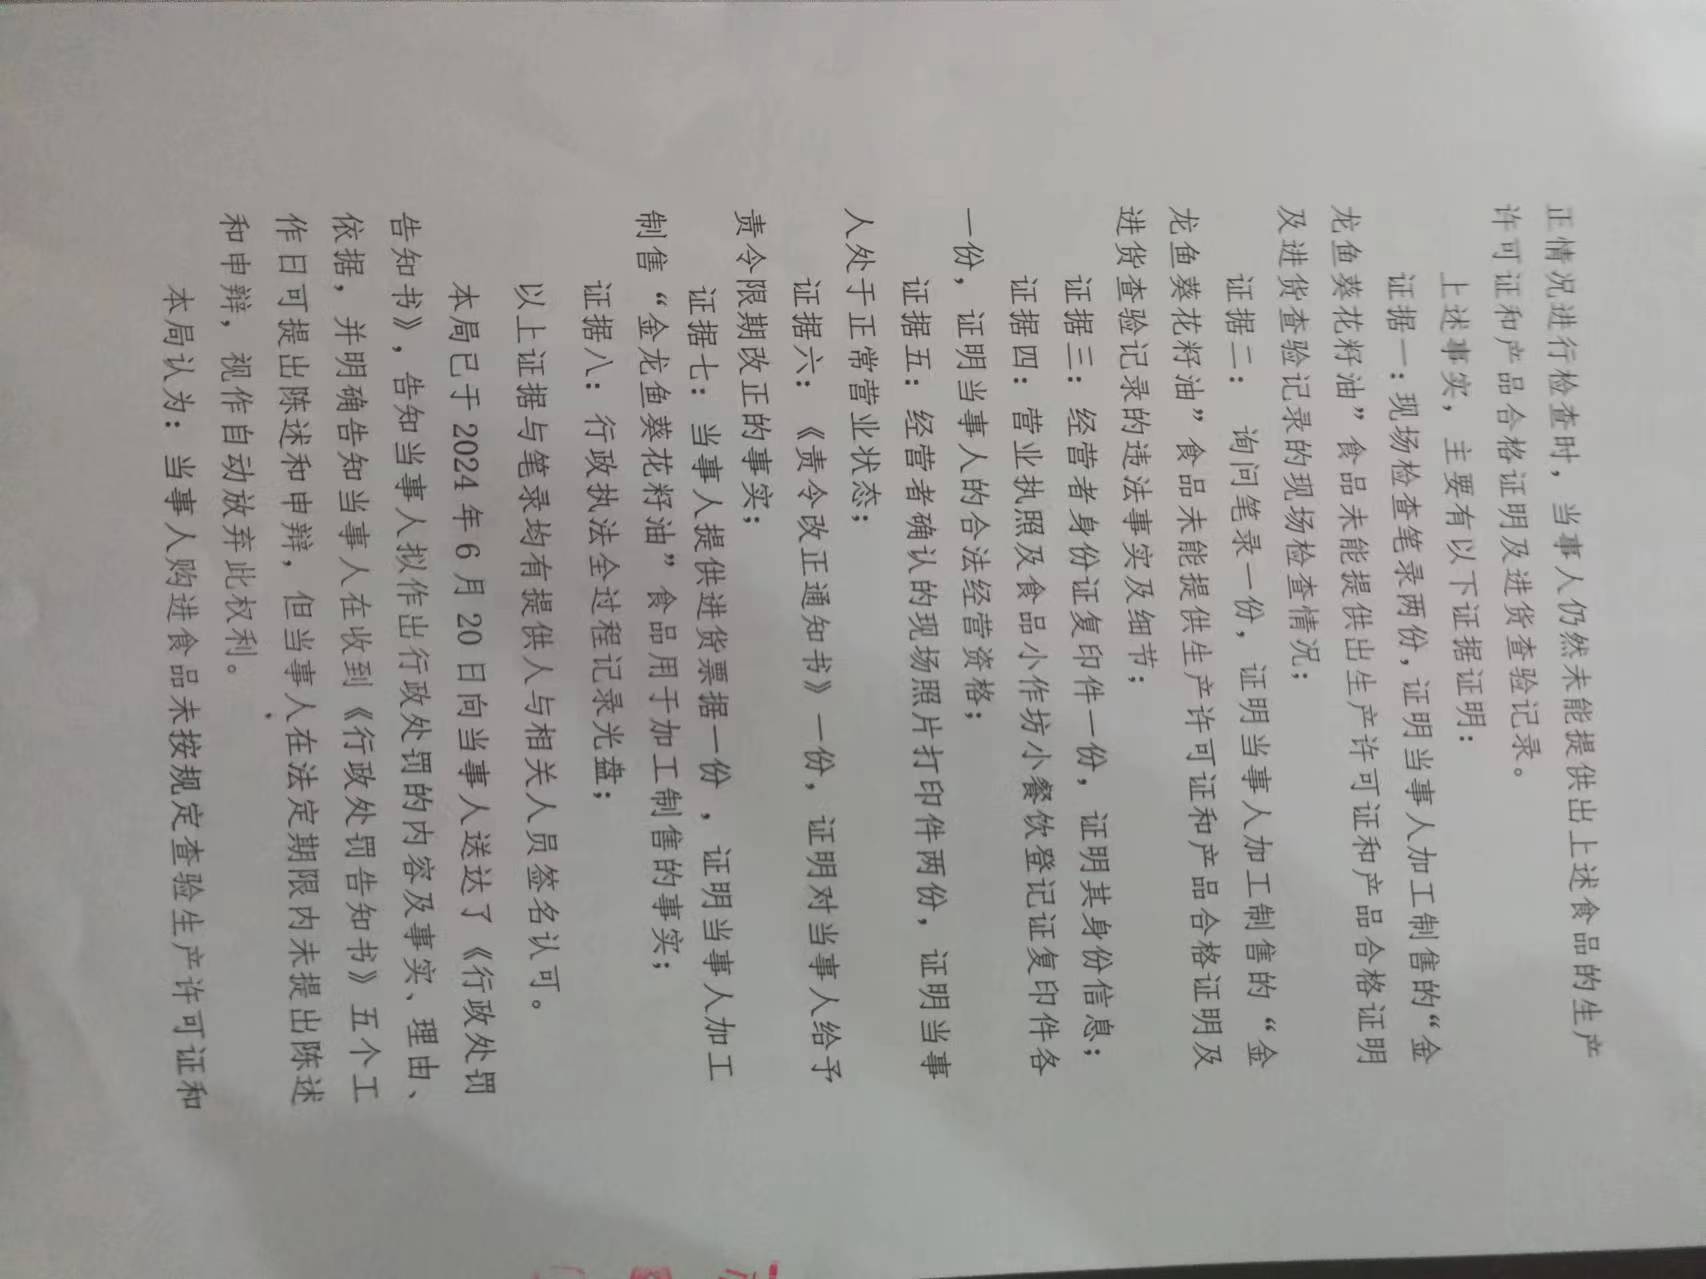 正情况进行检查时，当事人仍然未能提供出上述食品的生产
许可证和产品合格证明及进货查验记录。
上述事实，主要有以下证据证明：
证据一：现场检查笔录两份，证明当事人加工制售的“金
龙鱼葵花籽油”食品未能提供出生产许可证和产品合格证明
及进货查验记录的现场检查情况；
证据二： 询问笔录一份，证明当事人加工制售的“金
龙鱼葵花籽油”食品未能提供生产许可证和产品合格证明及
进货查验记录的违法事实及细节；
证据三：经营者身份证复印件一份，证明其身份信息；
证据四：营业执照及食品小作坊小餐饮登记证复印件各
一份，证明当事人的合法经营资格；
证据五：经营者确认的现场照片打印件两份，证明当事
人处于正常营业状态；
证据六：《责令改正通知书》一份，证明对当事人给予
责令限期改正的事实；
证据七：当事人提供进货票据一份，证明当事人加工
制售“金龙鱼葵花籽油”食品用于加工制售的事实；
证据八：行政执法全过程记录光盘；
以上证据与笔录均有提供人与相关人员签名认可。
本局已于2024年6月20日向当事人送达了《行政处罚
告知书》，告知当事人拟作出行政处罚的内容及事实、理由、
依据，并明确告知当事人在收到《行政处罚告知书》五个工
作日可提出陈述和申辩，但当事人在法定期限内未提出陈述
和申辩，视作自动放弃此权利。
本局认为：当事人购进食品未按规定查验生产许可证和